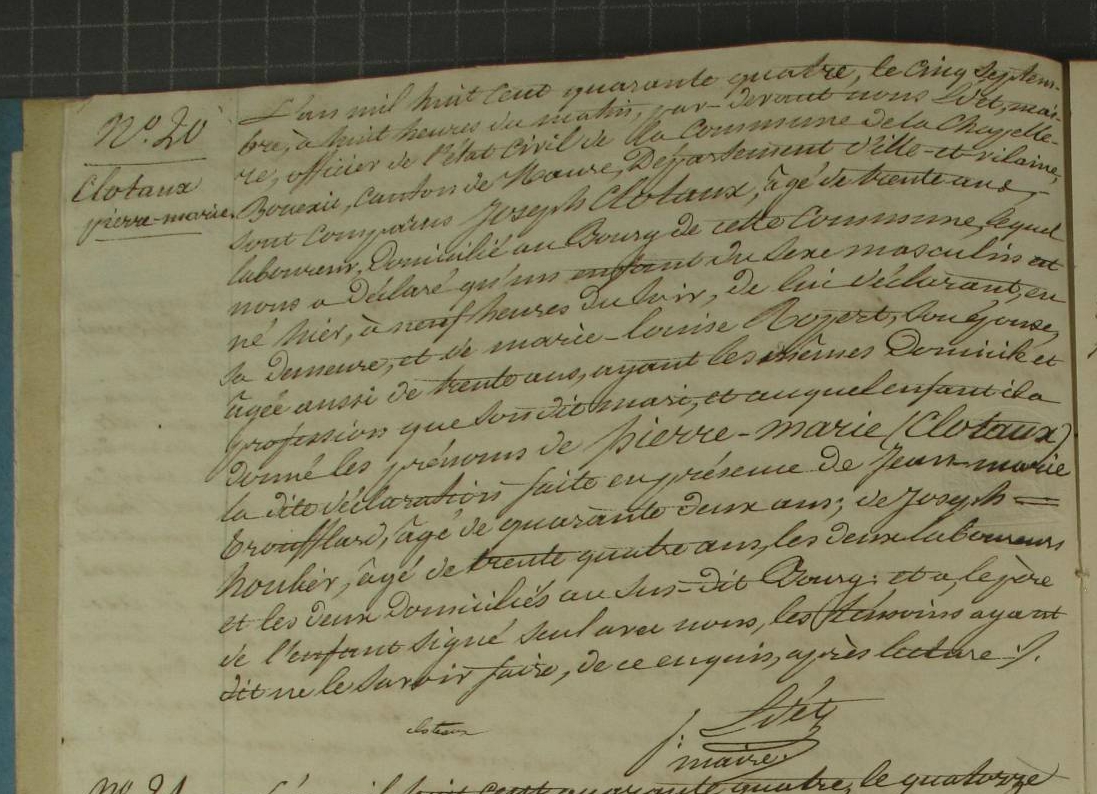 N.o 20
Clotaux
pierre-marie.
L'an mil huit cent quarante quatre, le cinq septem-
bre, à huit heures du matin, par-devant nous Lvét, mai-
re, officier de l'état Civil de la Commune de la Chapelle-
Bouëxic, Canton de Maure, Département d'ille-et-vilaine,
sont comparus Joseph Clotaux, âgé de trente ans,
laboureur, Domicilié au Bourg de cette Commune, lequel
nous a Déclaré qu'un enfant du sexe masculin est
né hier, à neuf heures du soir, de lui déclarant, en
sa demeure, et de marie-louise Rozert, son épouse,
âgée aussi de trente ans, ayant les mêmes Domicile et
profession que son dit mari, et auquel enfant il a
Donné les prénoms de pierre-marie (Clotaux)
la dite déclaration faite en présence de Jean-marie
Troufflard, âgé de quarante deux ans; de Joseph =
houbër, âgé de trente quatre ans, les deux laboureurs
et les deux Domiciliés au sus-dit Bourg: et a, le père
de l'enfant signé seul avec nous, les témoins ayant
dit ne le savoir faire, de ce enquis, après lecture ./.
clotaux
maire.
N.o 21
L'an mil huit cent quarante quatre, le quatorze